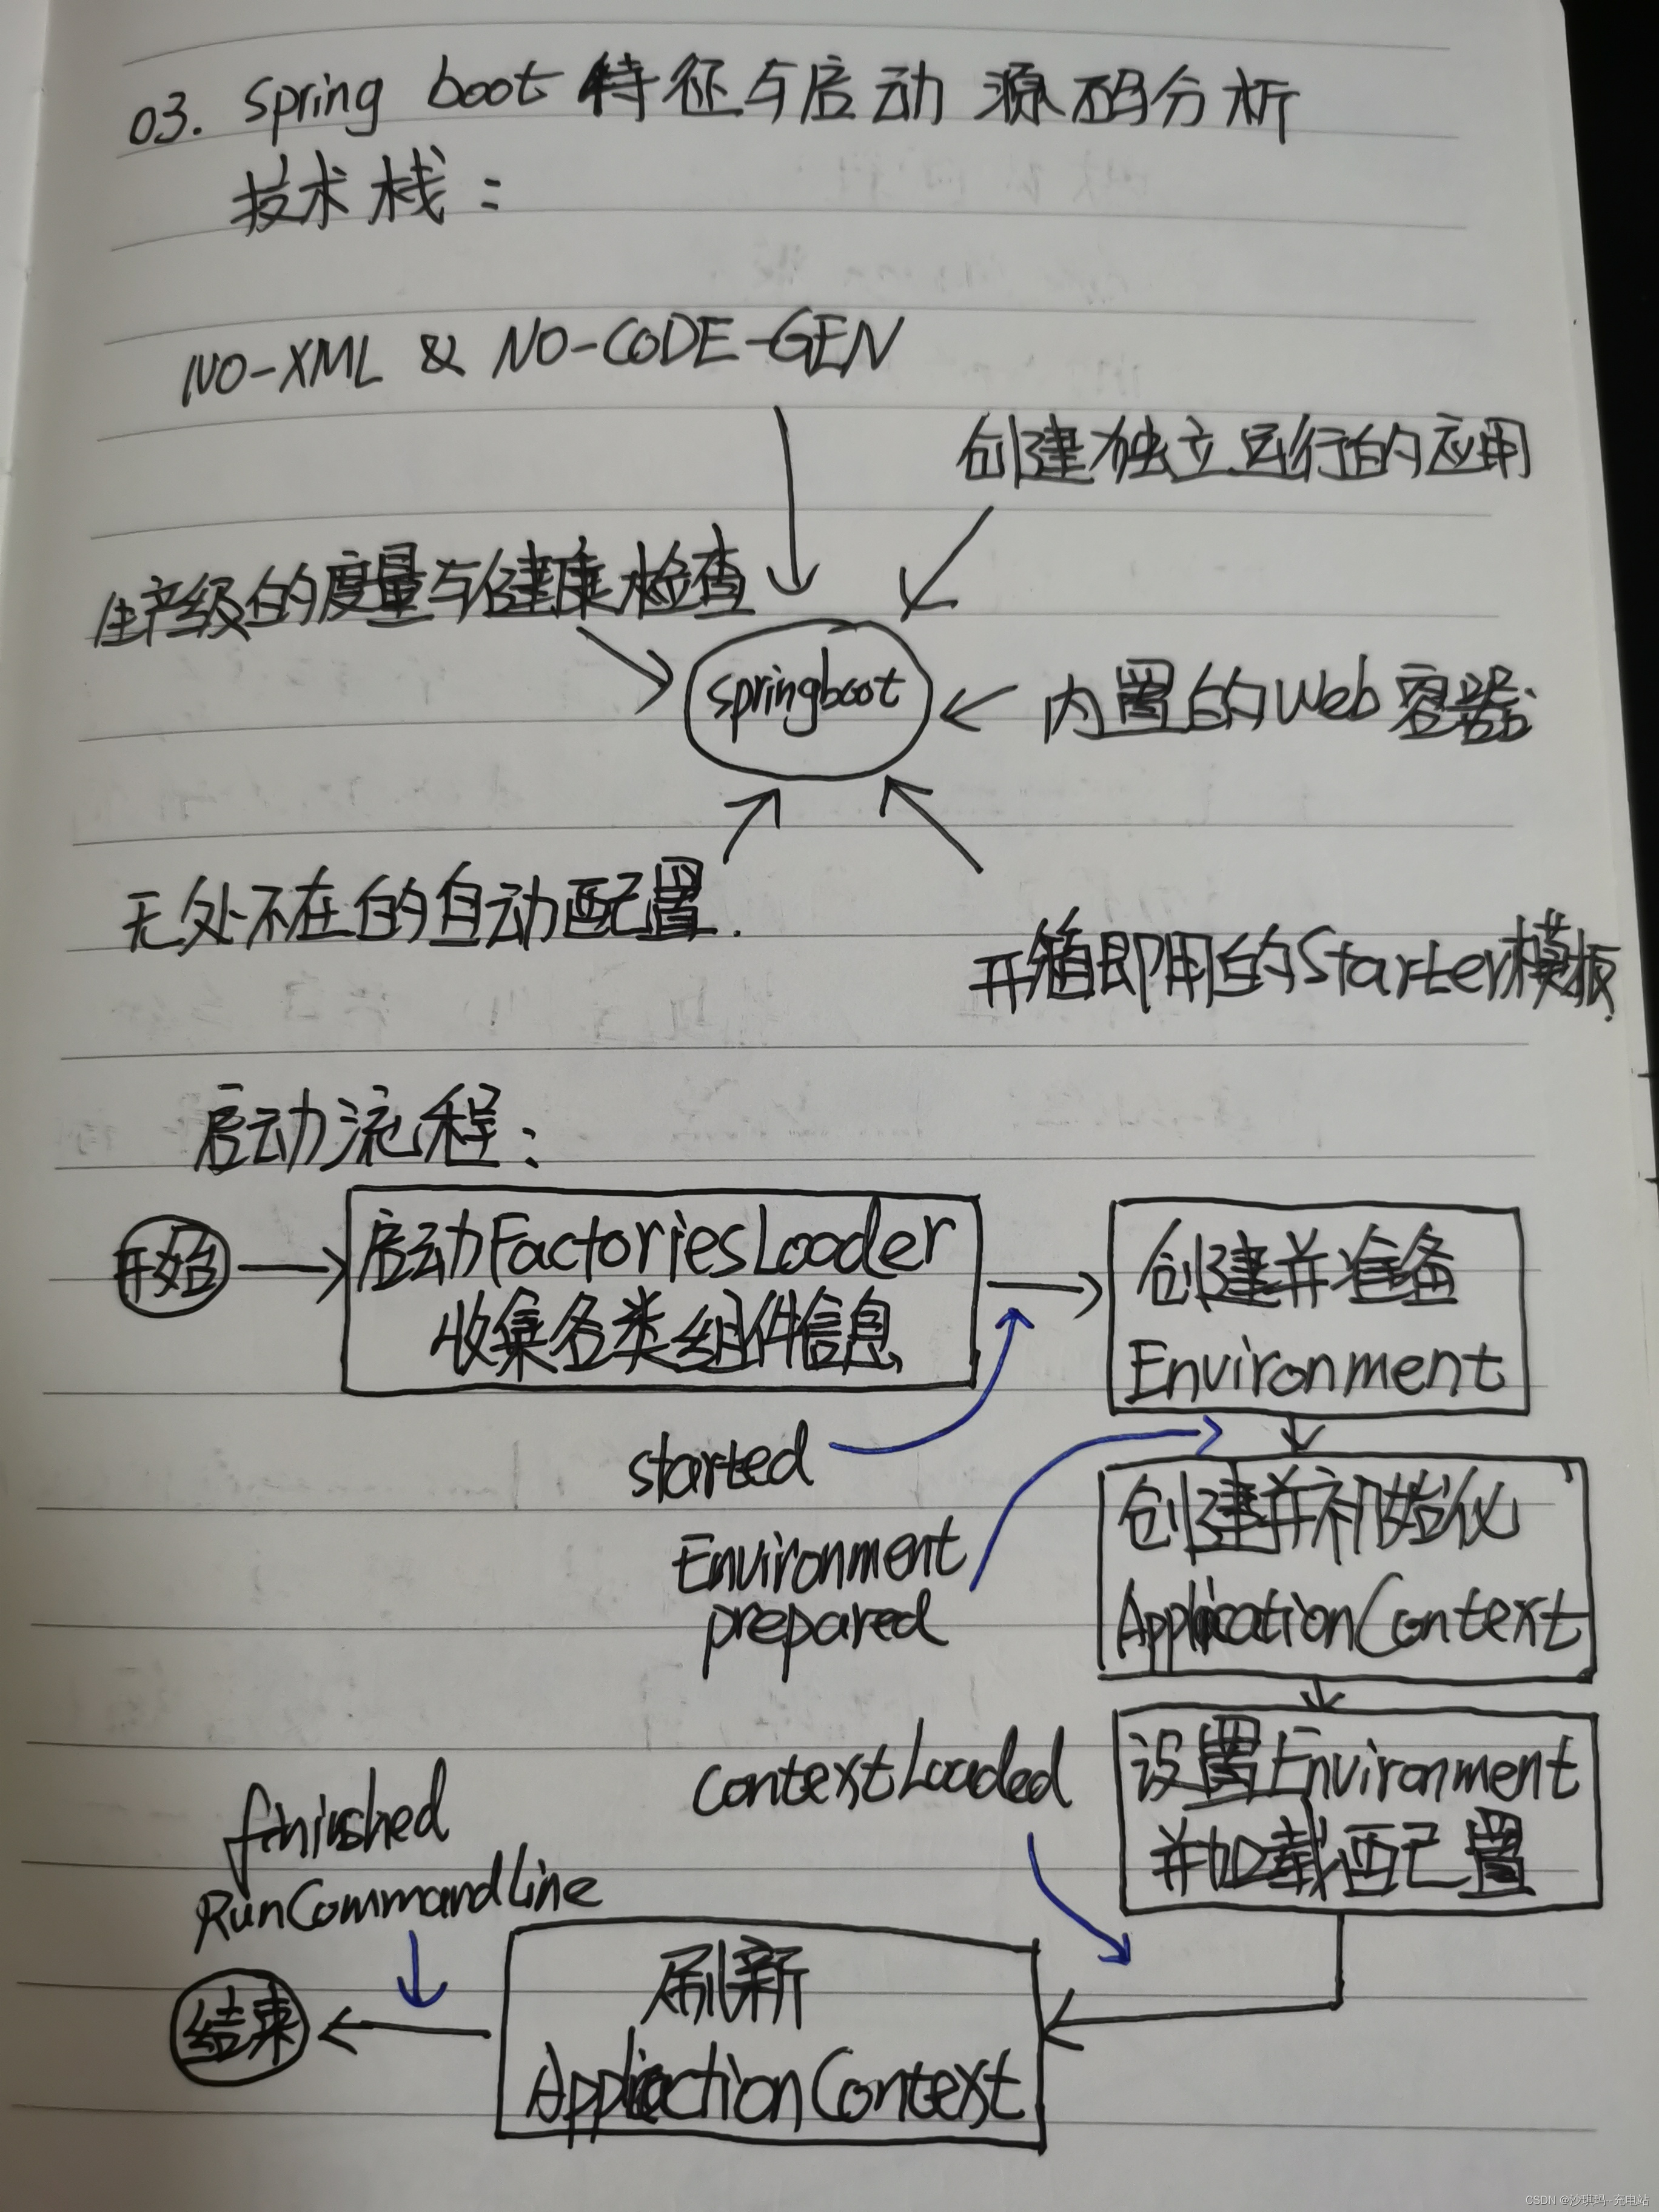 03. spring boot 特征与启动 源码分析
技术栈：
NO-XML & NO-CODE-GEN
创建独立运行的应用
生产级的度量与健康检查
springboot
内置的Web容器
无处不在的自动配置.
开箱即用的Starter模板.
启动流程：
开始
启动FactoriesLoader
收集各类组件信息
创建并准备
Environment
started
Environment
prepared
创建并初始化
ApplicationContext
contextLoaded
设置Environment
并加载配置
finished
RunCommandLine
刷新
ApplicationContext
结束
CSDN @沙琪玛-充电站